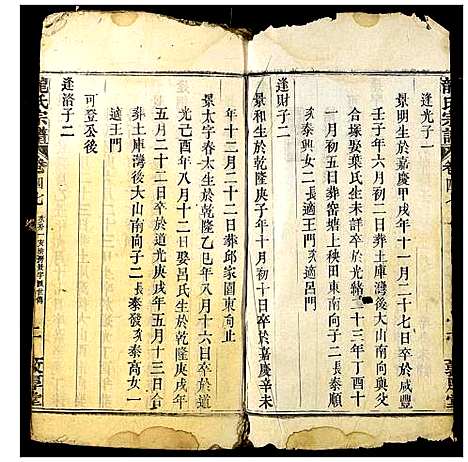 龍氏宗譜 卷四七
逢光子一
景明生於嘉慶甲戌年十一月二十七日卒於咸豐
壬子年六月初二日葬土庫灣後大山南向與父
合塚娶葉氏生未詳卒於光緒二十三年丁酉十
一月初五日葬窑塘上秧田東南向子二
亥泰興女二長適王門亥適呂門
逢財子二
景和生於乾隆庚子年十月初十日卒於嘉慶辛未
年十二月二十二日葬邱家園東向止
景太字春太生於乾隆乙巳年八月十六日卒於道
光己酉年八月十二日娶呂氏生於乾隆庚戌年
五月二十二日卒於道光庚戌年五月十三日合
葬土庫灣後大山南向子二長泰發亥泰高女一
適王門
可登丞後
逢洛子二
龍氏宗譜 卷四七
二 敦厚堂